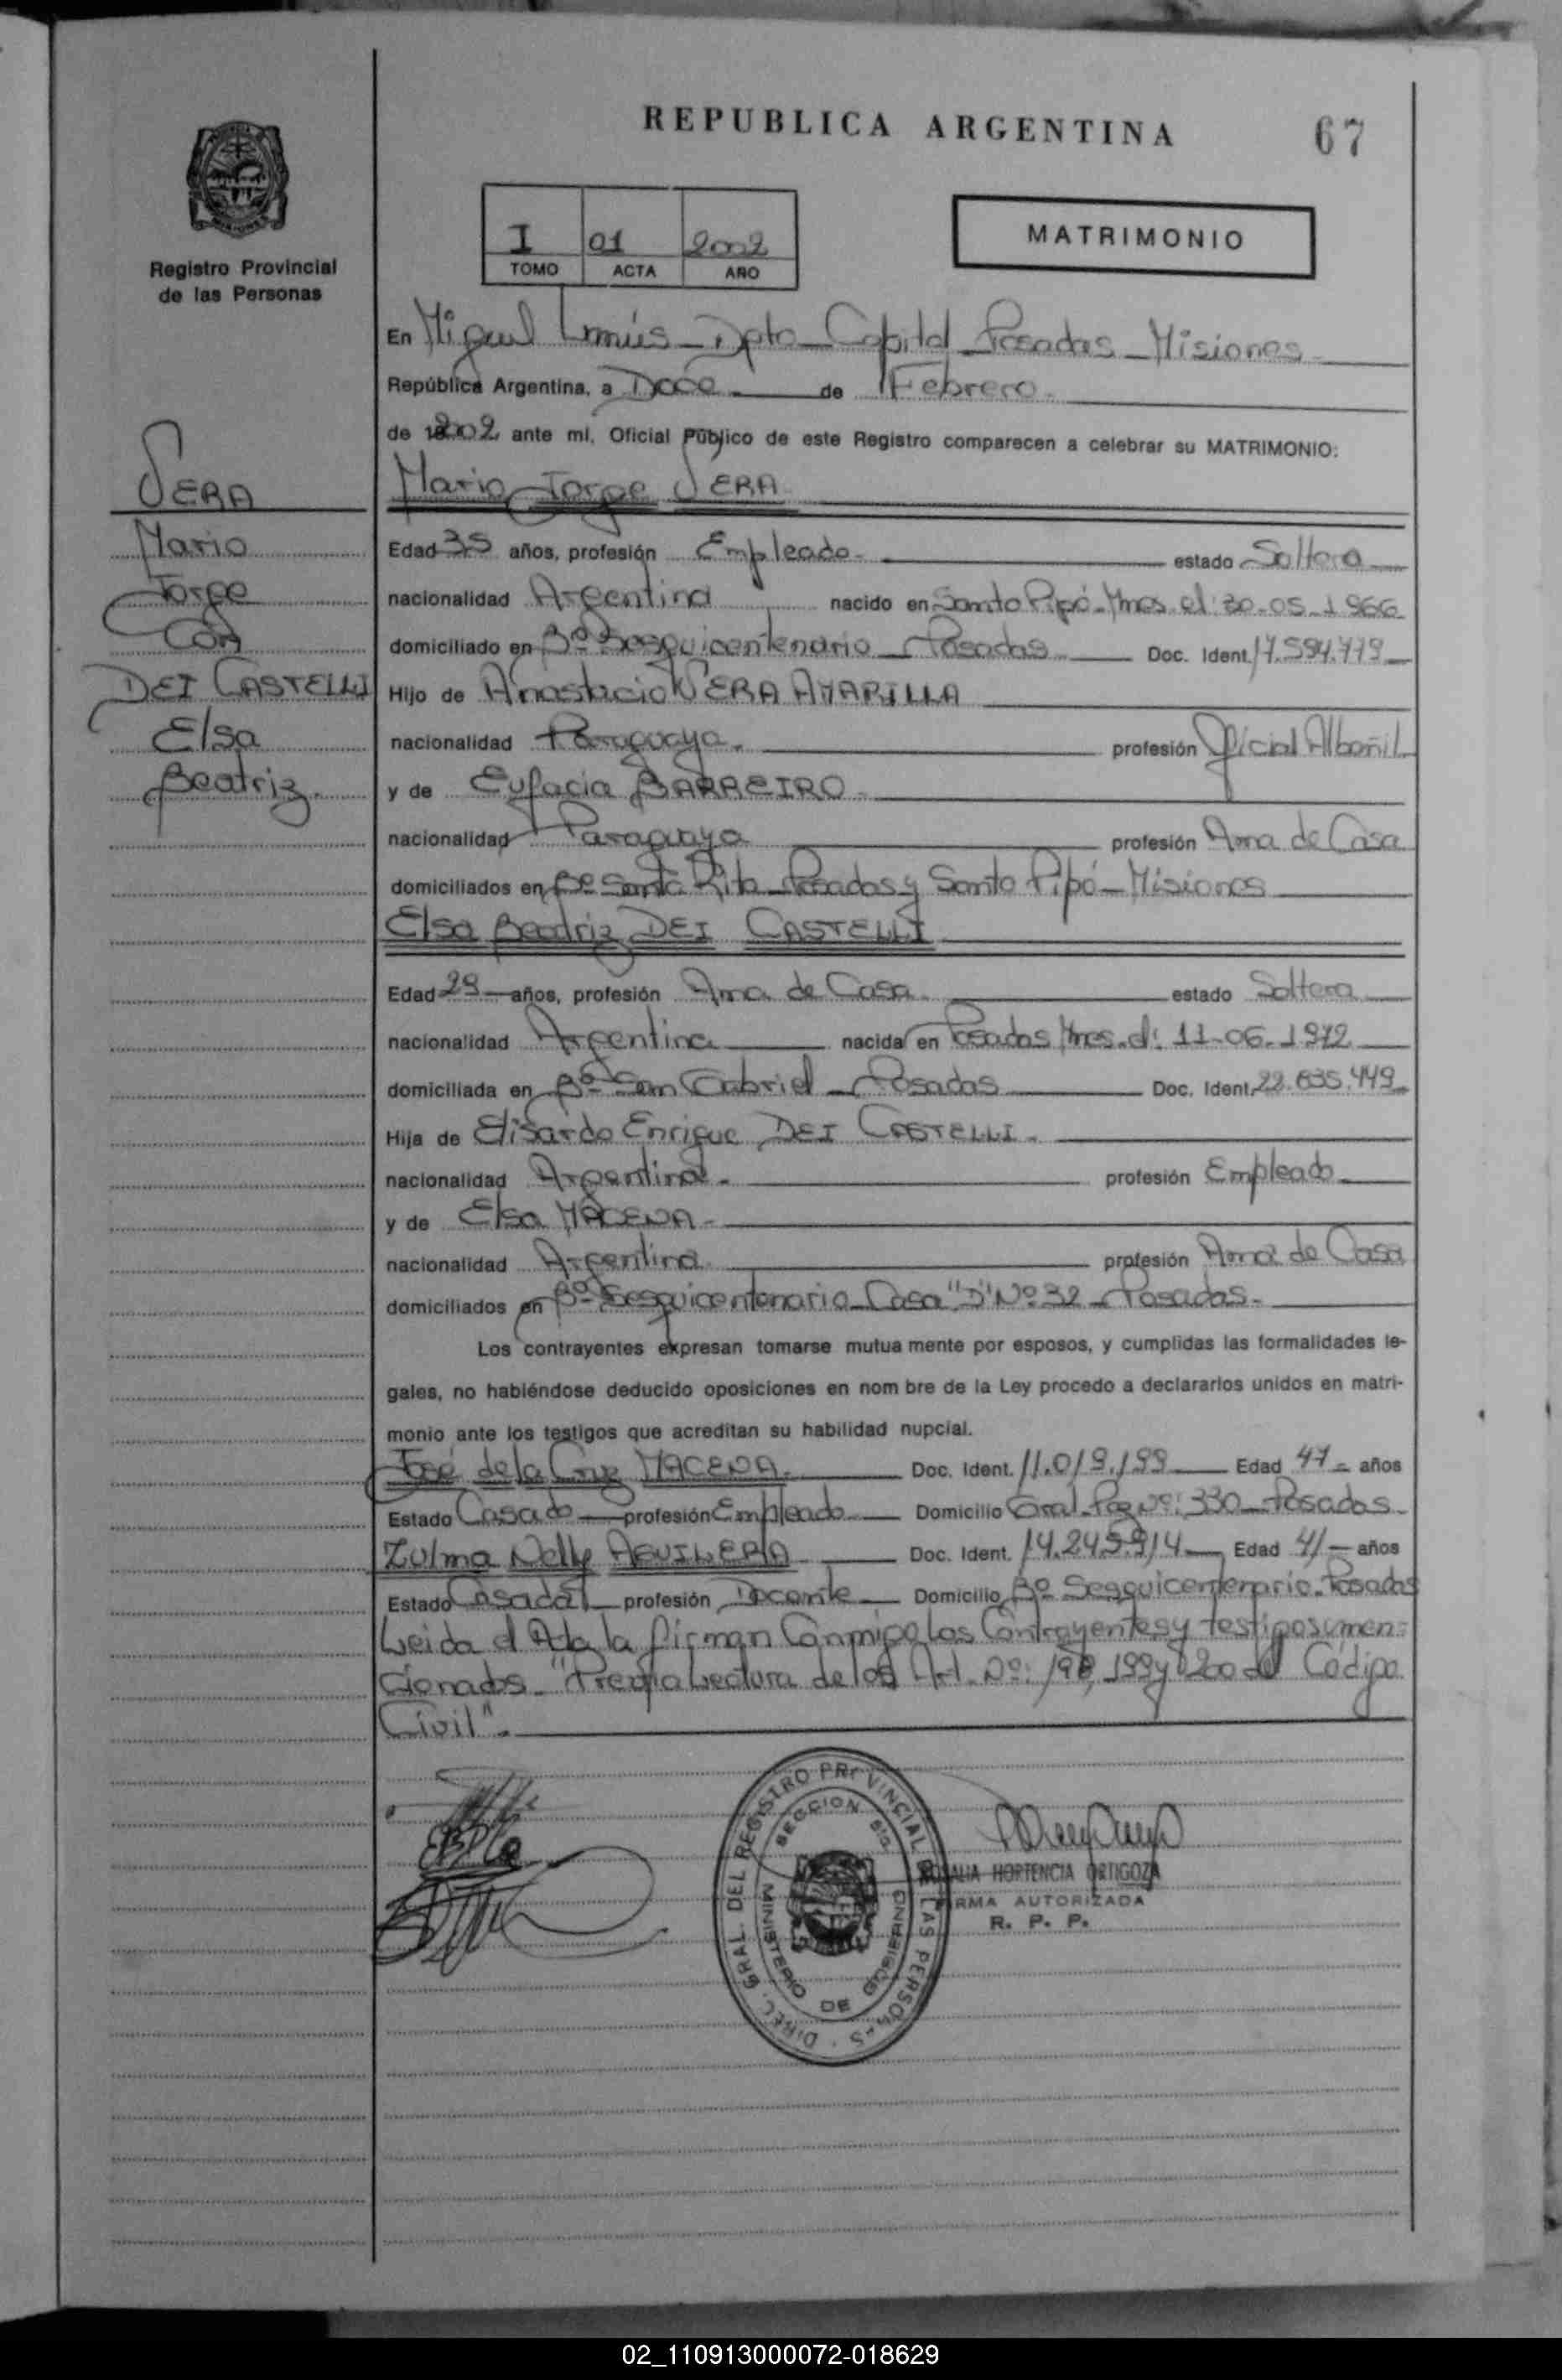 REPUBLICA ARGENTINA
67
Registro Provincial
de las Personas
I 01 2002
TOMO ACTA AÑO
MATRIMONIO
En Miguel Lanús - Dpto - Capital - Posadas - Misiones
República Argentina, a Doce de Febrero.
de 2002 ante mi, Oficial Público de este Registro comparecen a celebrar su MATRIMONIO:
VERA
Mario
Jorge
Con
DEI CASTELLI
Elsa
Beatriz.
Mario Jorge VERA
Edad 35 años, profesión Empleado. estado Soltero
nacionalidad Argentina nacido en Santo Pipó - Mnes. el: 30-05-1966
domiciliado en Bº Sesquicentenario - Posadas Doc. Ident. 17.594.779
Hijo de Anastacio VERA AYARILLA
nacionalidad Paraguaya. profesión Oficial Albañil
y de Eufacia BARREIRO
nacionalidad Paraguaya profesión Ama de Casa
domiciliados en Bº Santa Rita - Posadas y Santo Pipó - Misiones
Elsa Beatriz DEI CASTELLI
Edad 29 años, profesión Ama de Casa. estado Soltera
nacionalidad Argentina nacida en Posadas Mnes. el: 11-06-1972
domiciliada en Bº San Gabriel - Posadas Doc. Ident. 22.835.449
Hija de Elisardo Enrique DEI CASTELLI.
nacionalidad Argentina. profesión Empleado.
y de Elsa MACENA.
nacionalidad Argentina. profesión Ama de Casa
domiciliados en Bº Sesquicentenario - Casa "D" Nº 32 - Posadas.
Los contrayentes expresan tomarse mutua mente por esposos, y cumplidas las formalidades le-
gales, no habiéndose deducido oposiciones en nom bre de la Ley procedo a declararlos unidos en matri-
monio ante los testigos que acreditan su habilidad nupcial.
José de la Cruz MACENA. Doc. Ident. 11.019.199 Edad 47 años
Estado Casado profesión Empleado Domicilio Gral. Paz Nº: 330 - Posadas
Zulma Nelly AGUILERA Doc. Ident. 14.245.914 Edad 41 años
Estado Casada profesión Docente Domicilio Bº Sesquicentenario - Posadas
Leida el Acta la firman Conmigo Los Contrayentes y testigos men=
cionados - "Previa Lectura de los Art. Nº: 198, 199 y 200 del Código
Civil".
DIREC. GRAL. DEL REGISTRO PROVINCIAL DE LAS PERSONAS
SECCION
MINISTERIO DE GOBIERNO
ROSALIA HORTENCIA ORTIGOZA
FIRMA AUTORIZADA
R. P. P.
02_110913000072-018629